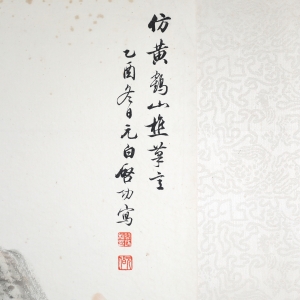 仿黄鹤山樵笔意
乙酉冬日元白启功写